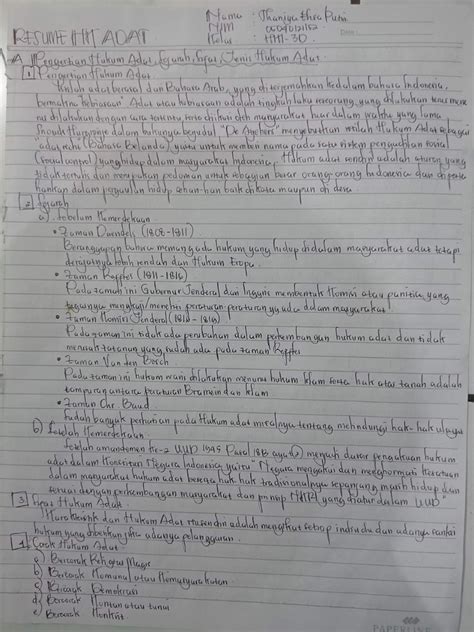 Nama : Thaniya Thea Putri
NIM :
RESUME HKM ADAT
Kelas : HMI-3D
Date :
A. Pengertian Hukum Adat, Sejarah, Sifat, Jenis Hukum Adat
1 Pengertian Hukum Adat
Istilah adat berasal dari Bahasa Arab, yang diterjemahkan kedalam bahasa Indonesia,
bermakna "kebiasaan" Adat atau kebiasaan adalah tingkah laku seseorang yang dilakukan terus mene
rus dilakukan dengan cara tertentu terus diikuti oleh masyarakat luar dalam waktu yang lama
Snouck Hurgronje dalam bukunya berjudul "De Atjehers" menyebutkan istilah Hukum Adat sebagai
"adat recht" (Bahasa Belanda) yaitu untuk memberi nama pada satu sistem pengendalian sosial
(social control) yang hidup dalam masyarakat Indonesia. Hukum adat sendiri adalah aturan yang
tidak tertulis dan merupakan pedoman untuk sebagian besar orang-orang Indonesia dan diperta
hankan dalam pergaulan hidup sehari-hari baik di kota maupun di desa.
2 Sejarah
a) Sebelum Kemerdekaan
• Zaman Daendels (1808-1811)
Beranggapan bahwa memang ada hukum yang hidup didalam masyarakat adat tetapi
derajatnya lebih rendah dari Hukum Eropa.
• Zaman Raffles (1811-1816)
Pada zaman ini Gubernur Jenderal dari Inggris membentuk komisi atau panitia yang
tugasnya mengkaji/meneliti peraturan-peraturan yang ada dalam masyarakat
• Zaman Komisi Jenderal (1816-1819)
Pada zaman ini tidak ada perubahan dalam perkembangan hukum adat dan tidak
merusak tatanan yang sudah ada pada zaman Raffles
• Zaman Van den Bosch
Pada zaman ini hukum waris dilakukan menurut hukum Islam serta hak atas tanah adalah
campuran antara peraturan Bramein dan Islam
• Zaman Chr. Baud
Sudah banyak perhatian pada Hukum adat misalnya tentang melindungi hak-hak ulayat
b) Setelah Kemerdekaan
Setelah amandemen ke-2 UUD 1945 Pasal 18B ayat (2) menjadi dasar pengakuan hukum
adat dalam Konstitusi Negara Indonesia yaitu "Negara mengakui dan menghormati kesatuan
dalam masyarakat hukum adat beserta hak-hak tradisionalnya sepanjang masih hidup dan
sesuai dengan perkembangan masyarakat dan prinsip NKRI yang diatur dalam UUD"
3 Sifat Hukum Adat
dari Hukum Adat itu sendiri adalah mengikat setiap individu dan adanya sanksi
hukum yang diberikan jika adanya pelanggaran.
4 Corak Hukum Adat
a) Bercorak Religius Magis
b) Bercorak Komunal atau Kemasyarakatan
c) Bercorak Demokrasi
d) Bercorak Kontan atau tunai
e) Bercorak Konkrit
PAPERLINE